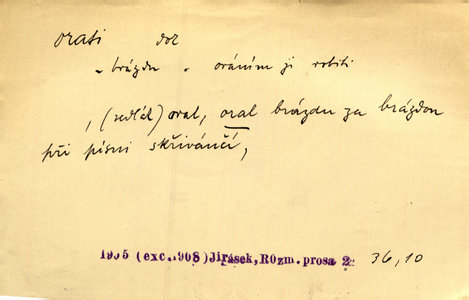 orati dok
„ brázdu „ oráním ji robiti
, (sedlák) oral, oral brázdu za brázdou
při písni skřivánčí,
1905 (exc. 1908) Jirásek, Rozm. prosa 2 36,10